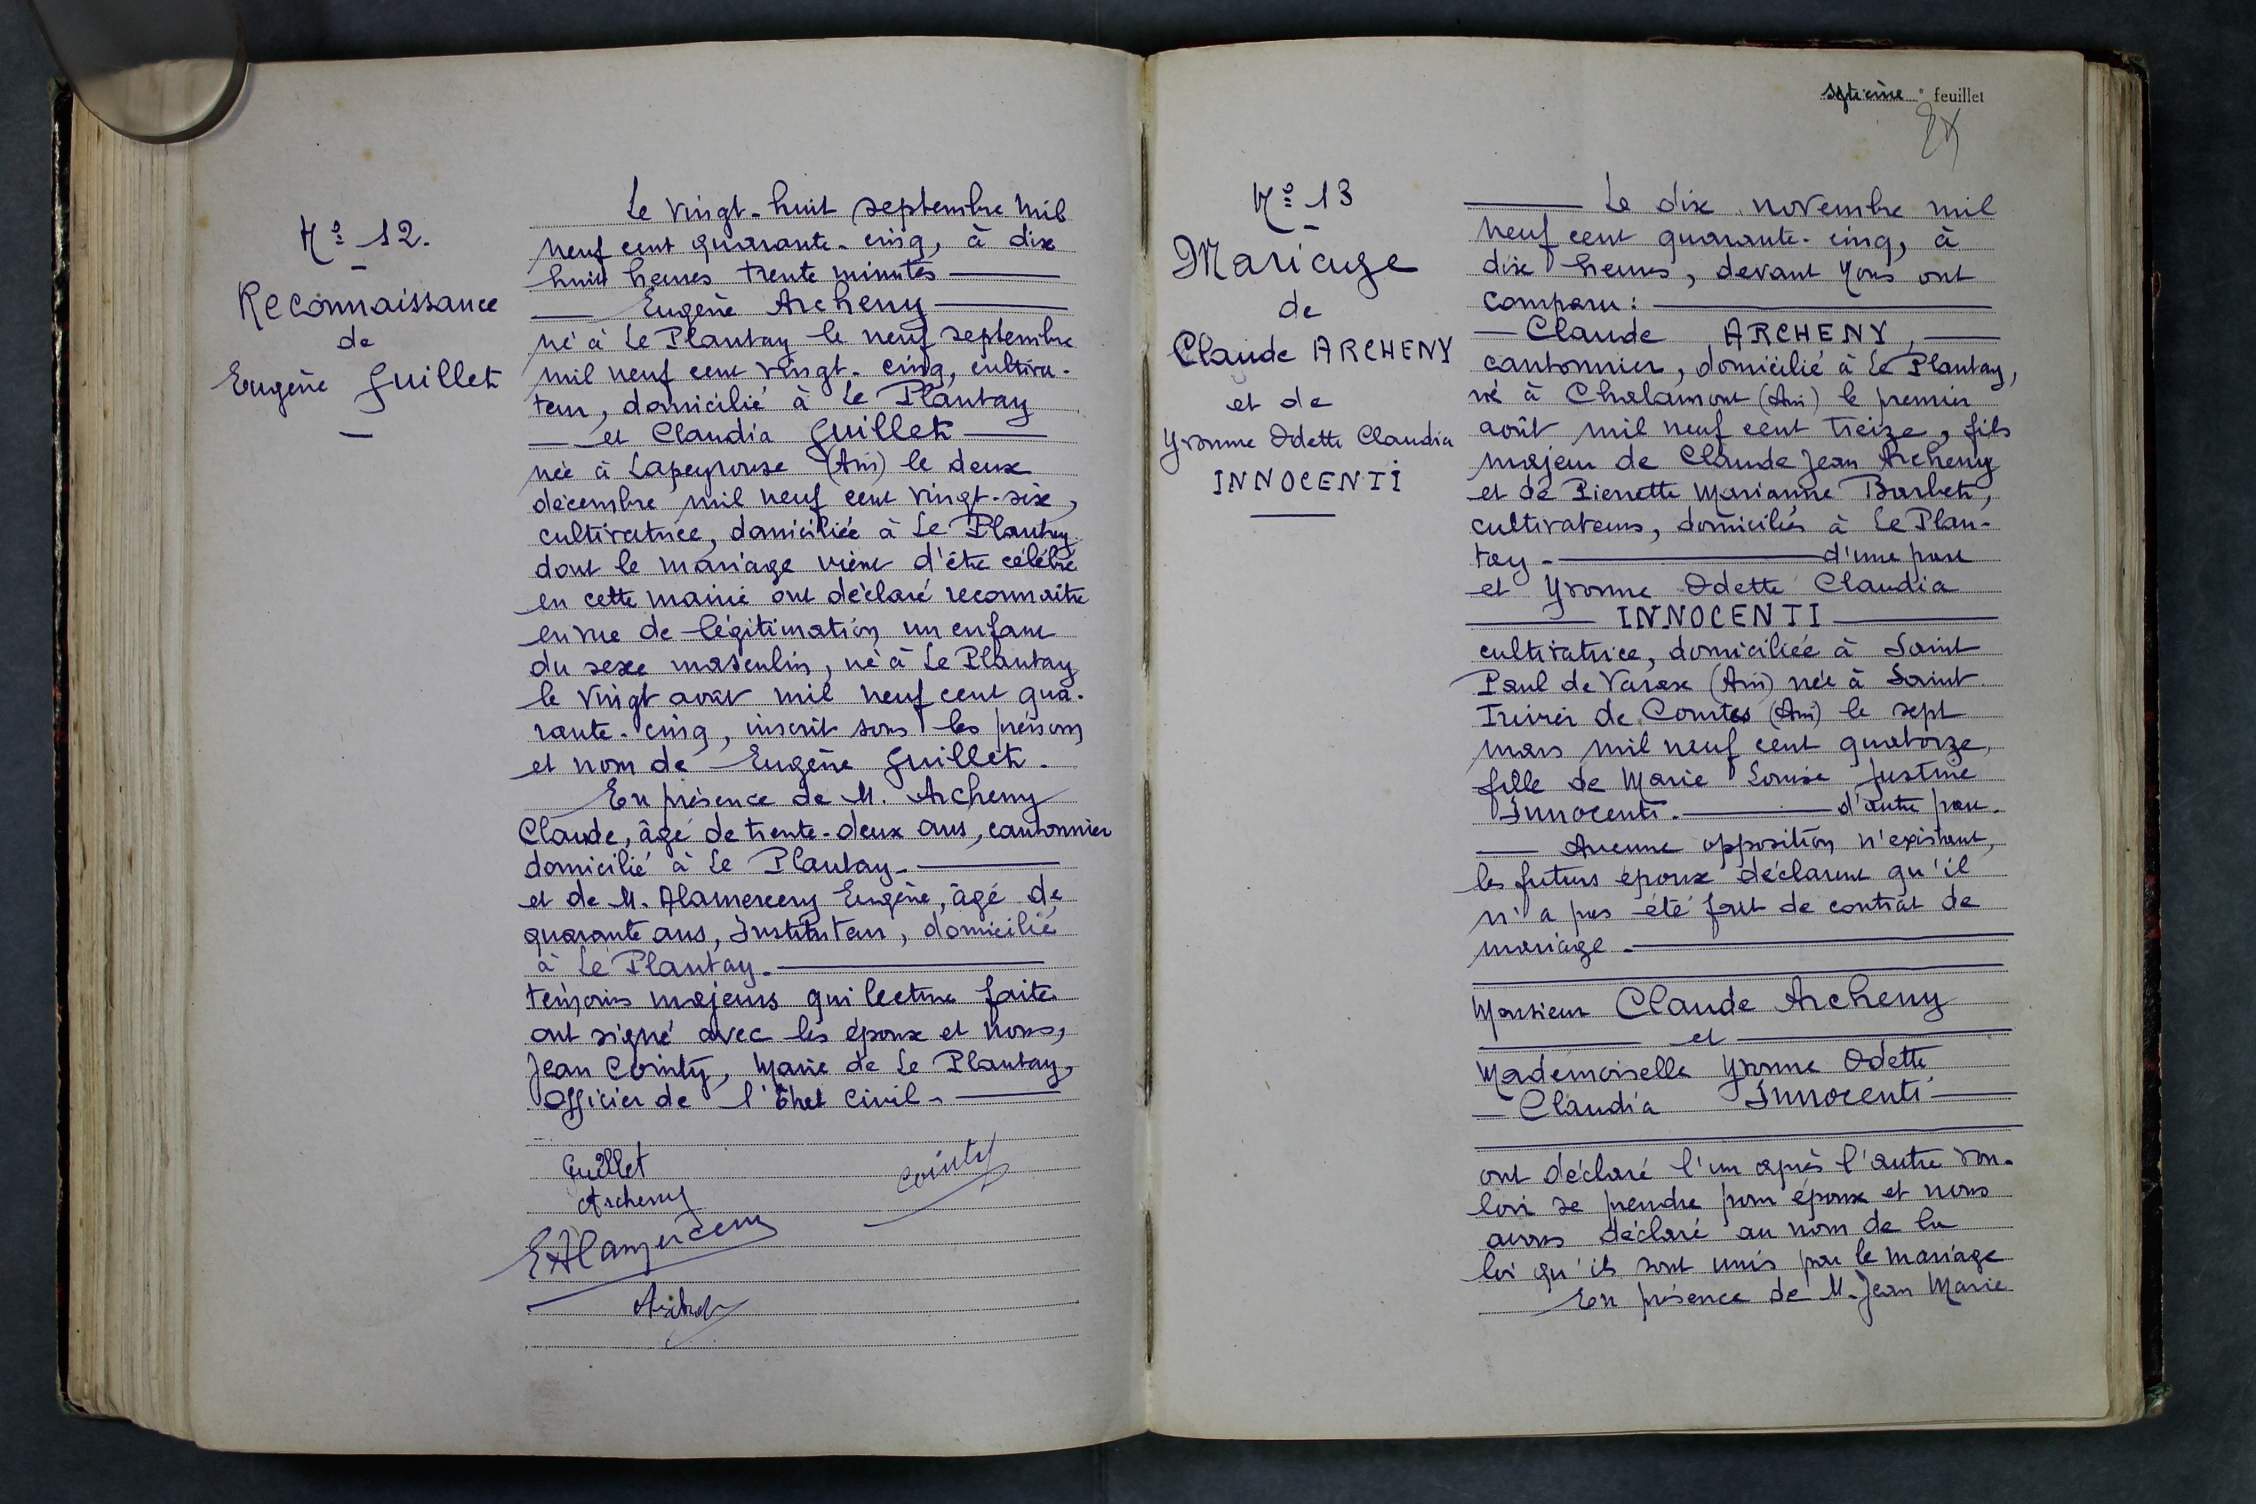 Nº 12.
Reconnaissance
de
Eugène Guillet
Le vingt-huit septembre mil
neuf cent quarante-cinq, à dix
huit heures trente minutes
Eugène Archeny
né à Le Plantay le neuf septembre
mil neuf cent vingt-cinq, cultiva-
teur, domicilié à Le Plantay
et Claudia Guillet
née à Lapeyrouse (Ain) le deux
décembre mil neuf cent vingt-six,
cultivatrice, domiciliée à Le Plantay
dont le mariage vient d'être célébré
en cette mairie ont déclaré reconnaitre
en vue de légitimation un enfant
du sexe masculin, né à Le Plantay
le vingt août mil neuf cent qua-
rante-cinq, inscrit sous les prénoms
et nom de Eugène Guillet.
En présence de M. Archeny
Claude, âgé de trente-deux ans, cantonnier
domicilié à Le Plantay.
et de M. Alamercery Eugène, âgé de
quarante ans, Instituteur, domicilié
à Le Plantay.
témoins majeurs qui lecture faite
ont signé avec les époux et Nous,
Jean Cointy, Maire de Le Plantay,
Officier de l'Etat Civil.
Guillet
Cointy
Archeny
EAlamercery
septième feuillet
Nº 13
Mariage
de
Claude ARCHENY
et de
Yvonne Odette Claudia
INNOCENTI
Le dix novembre mil
neuf cent quarante-cinq, à
dix heures, devant Nous ont
comparu :
Claude ARCHENY,
cantonnier, domicilié à Le Plantay,
né à Chalamont (Ain) le premier
août mil neuf cent treize, fils
majeur de Claude Jean Archeny
et de Pierrette Marianne Barbet,
cultivateurs, domiciliés à Le Plan-
tay. d'une part
et Yvonne Odette Claudia
INNOCENTI
cultivatrice, domiciliée à Saint
Paul de Varax (Ain) née à Saint
Trivier de Courtes (Ain) le sept
mars mil neuf cent quatorze,
fille de Marie Louise Justine
Innocenti. d'autre part.
Aucune opposition n'existant,
les futurs époux déclarent qu'il
n'a pas été fait de contrat de
mariage.
Monsieur Claude Archeny
et
Mademoiselle Yvonne Odette
Claudia Innocenti
ont déclaré l'un après l'autre vou-
loir se prendre pour époux et nous
avons déclaré au nom de la
loi qu'ils sont unis par le mariage
En présence de M. Jean Marie